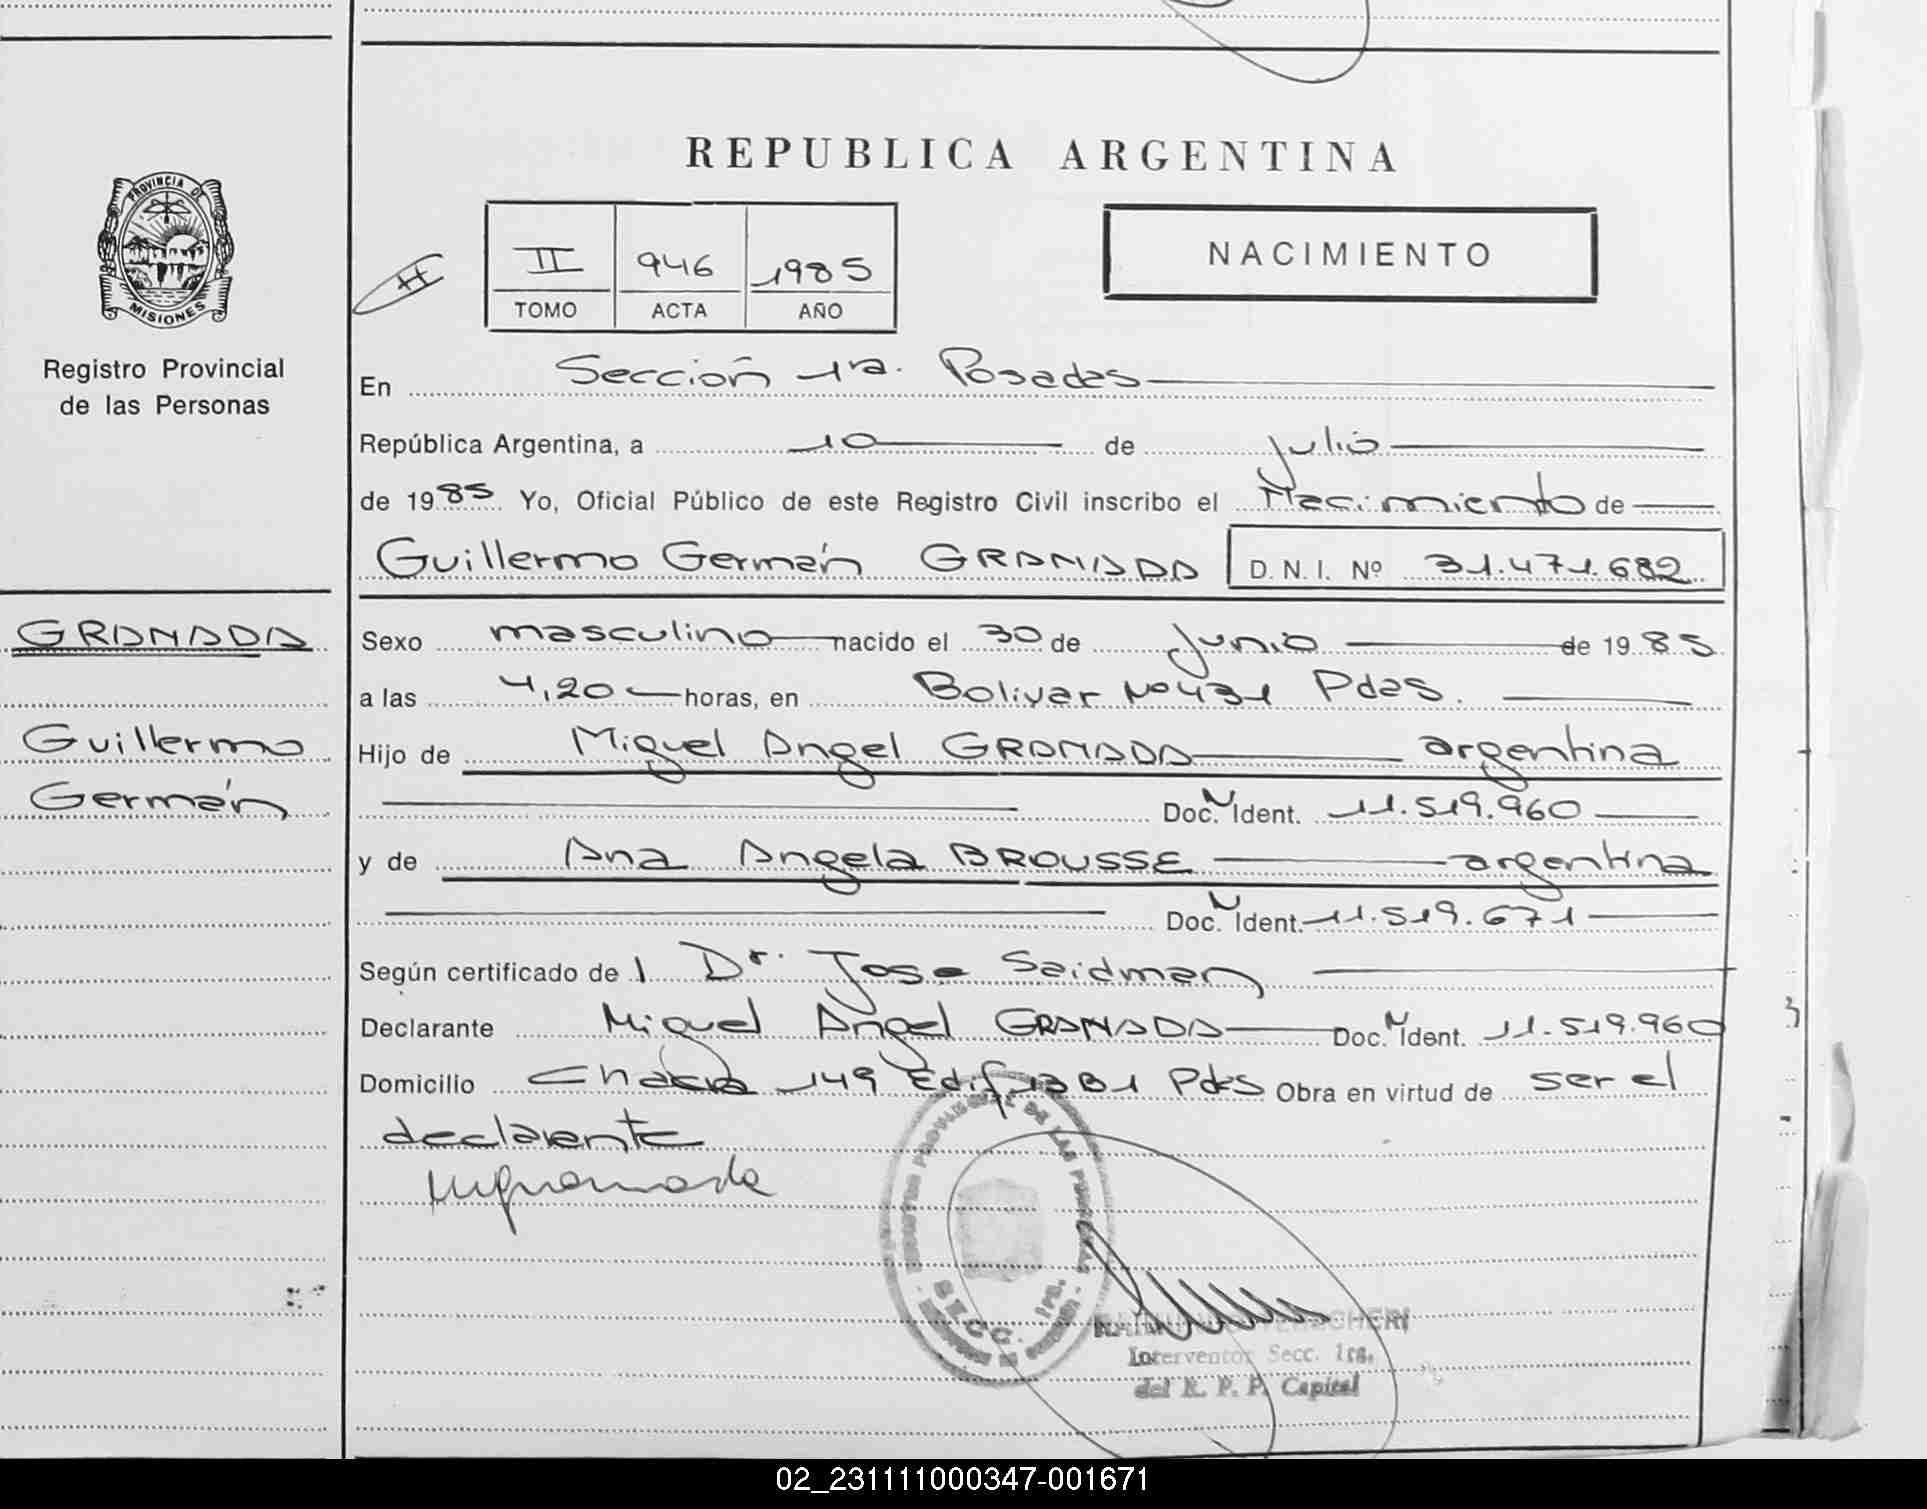 PROVINCIA DE
MISIONES
Registro Provincial
de las Personas
GRANADA
Guillermo
Germán
REPUBLICA ARGENTINA
II 946 1985
TOMO ACTA AÑO
NACIMIENTO
En Sección 1ra. Posadas
República Argentina, a 10 de Julio
de 1985 Yo, Oficial Público de este Registro Civil inscribo el Nacimiento de
Guillermo Germán GRANADA D.N.I. Nº 31.471.682
Sexo masculino nacido el 30 de Junio de 1985
a las 4,20 horas, en Bolivar Nº 431 Pdas.
Hijo de Miguel Angel GRANADA argentina
Doc. N Ident. 11.519.960
y de Ana Angela BROUSSE argentina
Doc. N Ident. 11.519.671
Según certificado de l Dr. Jose Saidman
Declarante Miguel Angel GRANADA Doc. N Ident. 11.519.960
Domicilio Chacra 149 Edif 13 B1 Pdas Obra en virtud de ser el
declarante
DE LAS
SECC. 1ra.
Interventor Secc. 1ra.
del R. P. P. Capital
02_231111000347-001671